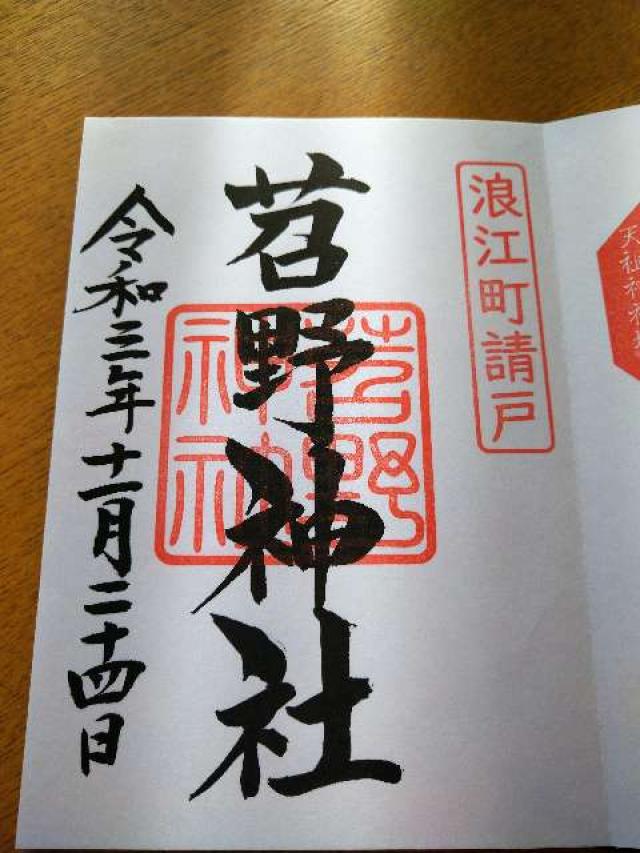 浪江町請戸
苕野神社
苕野神社
令和三年十一月二十四日